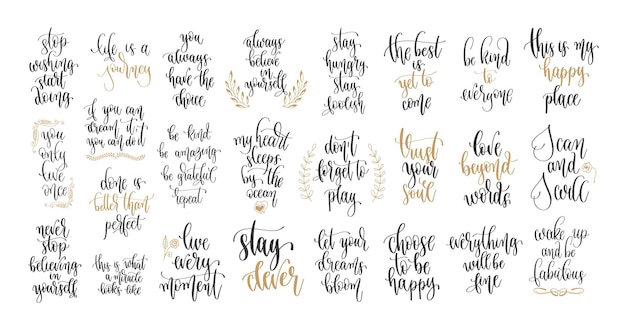 stop
wishing
start
doing
life is a
journey
you
always
have the
choice
always
believe
in
yourself
stay
hungry
stay
foolish
the best
is
yet to
come
be kind
to
everyone
this is my
happy
place
you
only
live
once
if you can
dream it
you can do it
be kind
be amazing
be grateful
repeat
my heart
sleeps
by the
ocean
don't
forget to
play
trust
your
soul
love
beyond
words
I can
and
I will
done is
better than
perfect
never
stop
believing
in
yourself
this is what
a miracle
looks like
live
every
moment
stay
clever
let your
dreams
bloom
choose
to be
happy
everything
will be
fine
wake up
and be
fabulous